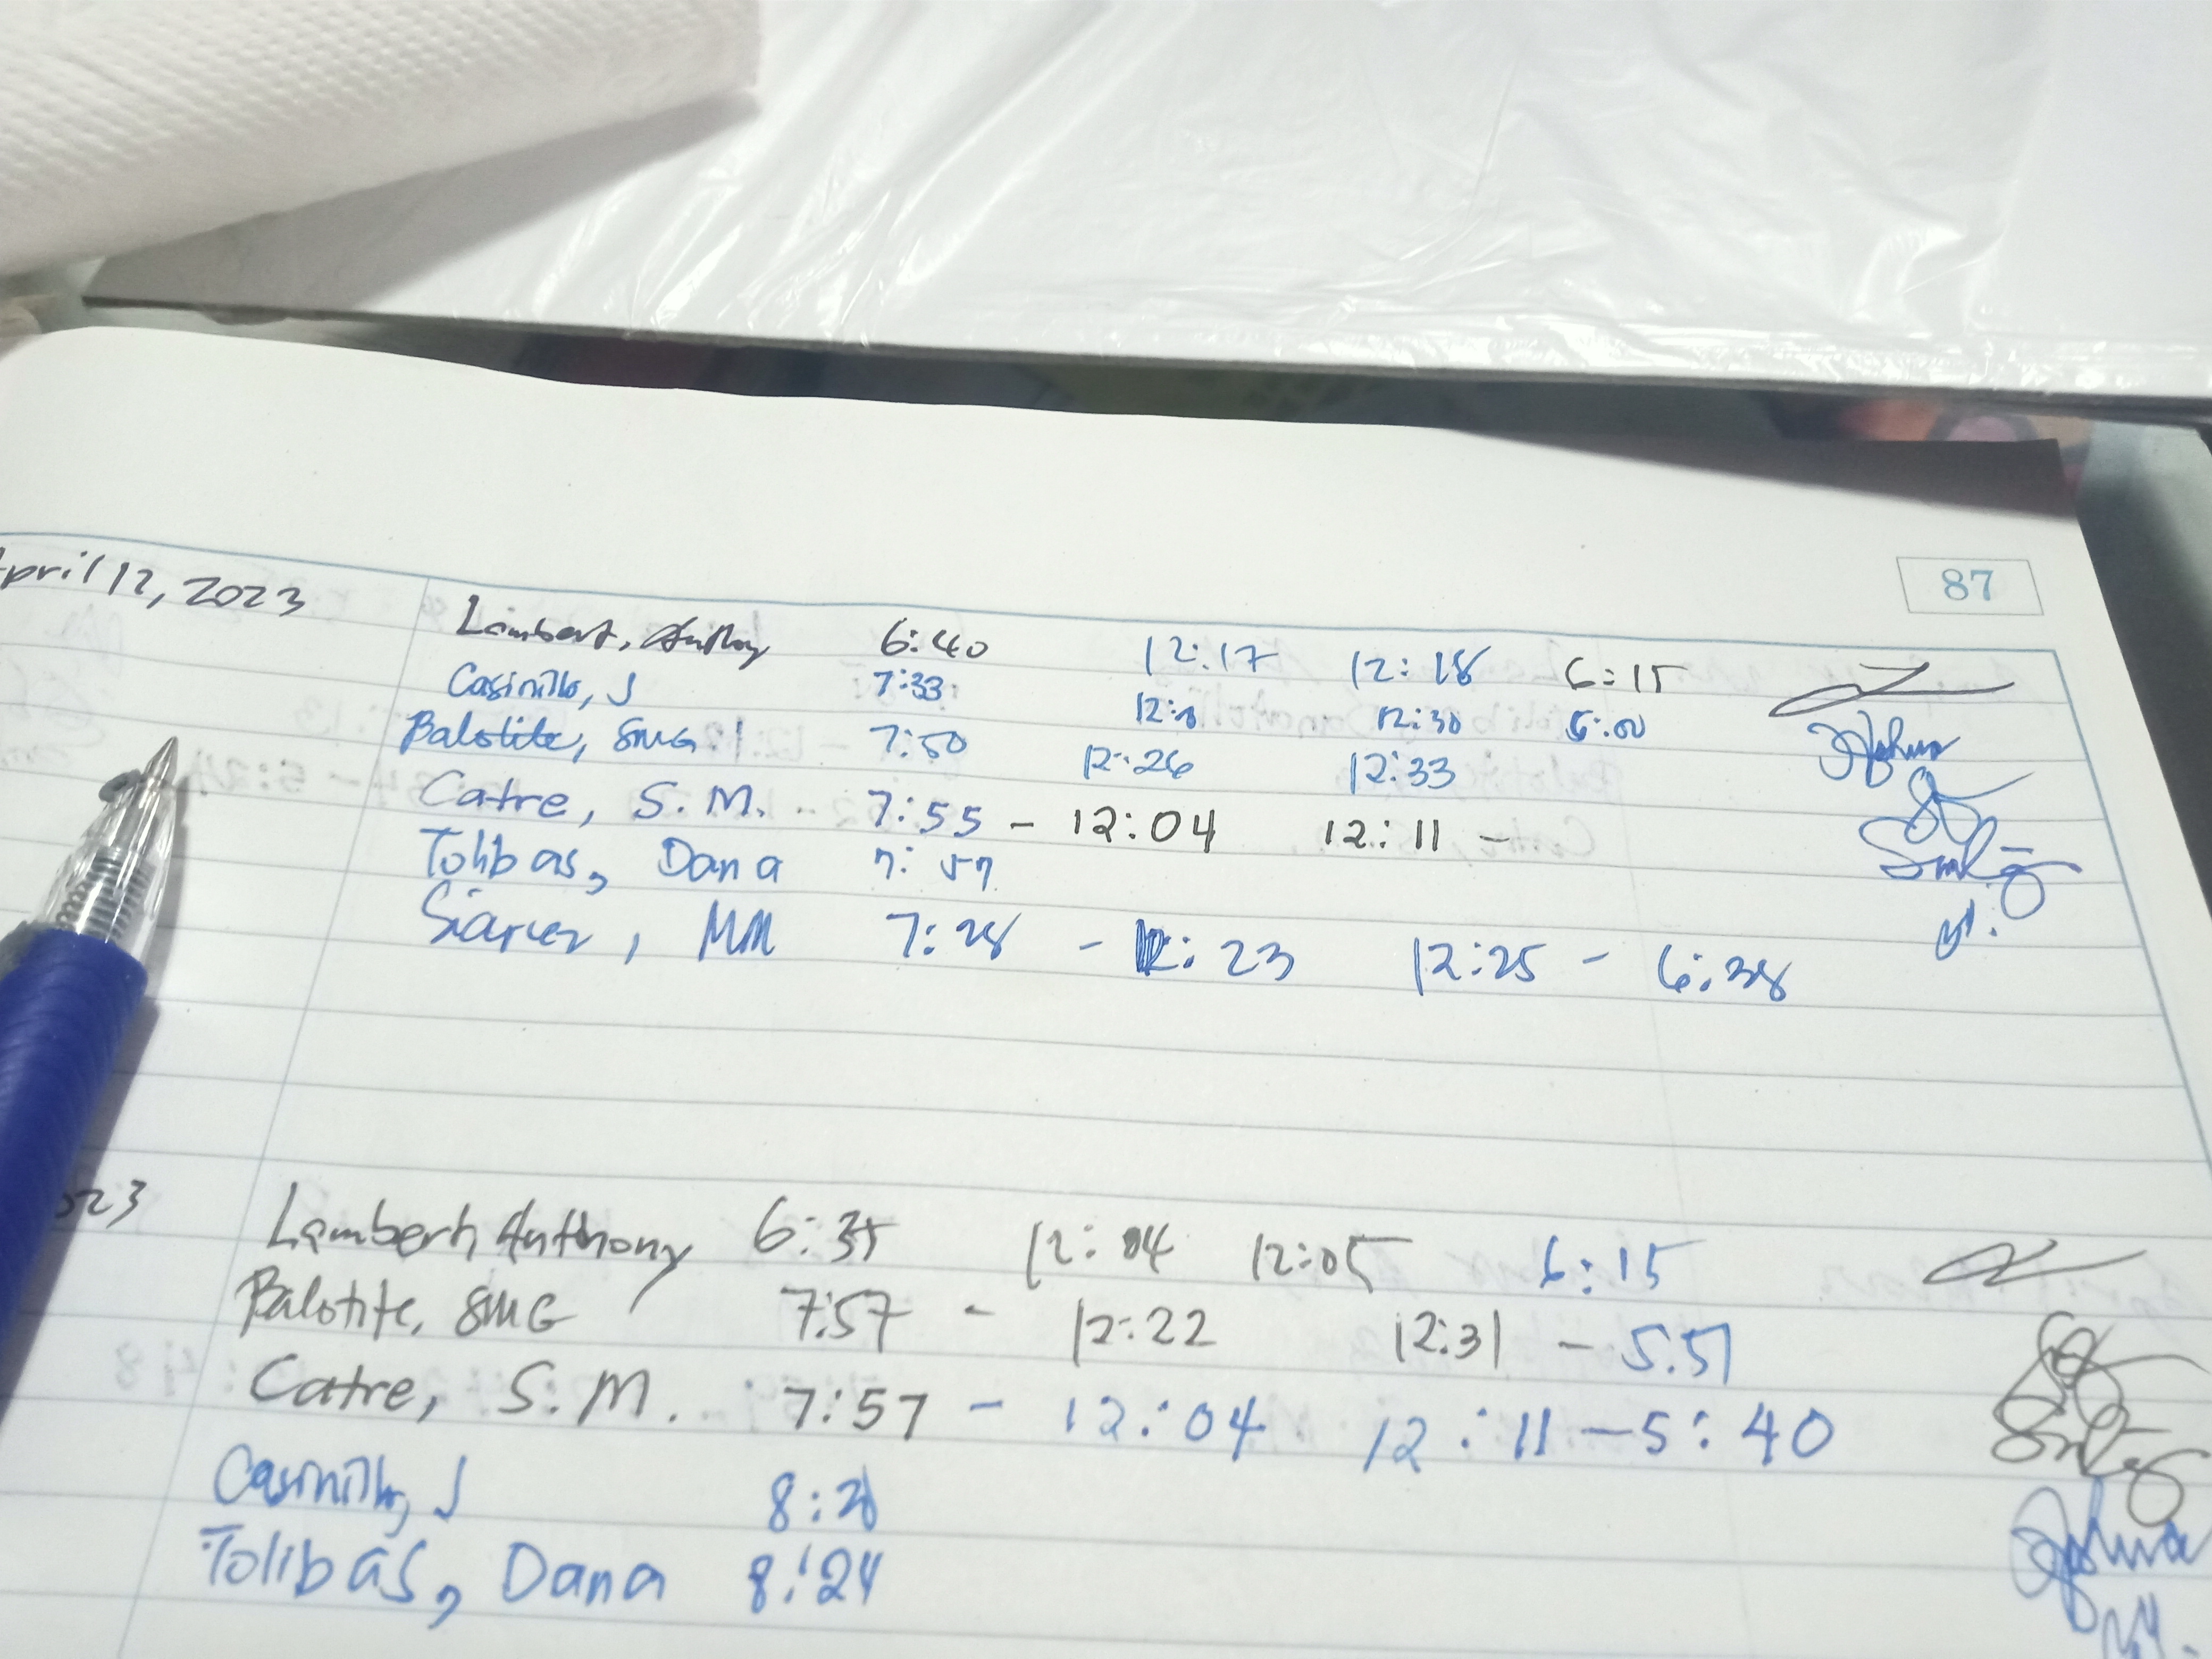 87
April 12, 2023
Lambert, Anthony 6:40 12:17 12:18 6:15
Casinillo, J 7:33 12:30 6:00
Balotite, SMG 7:50 12:26 12:33
Catre, S.M. 7:55 - 12:04 12:11 -
Tolibas, Dana 7:57
MM 7:28 - 12:23 12:25 - 6:38
023
Lambert, Anthony 6:35 12:04 12:05 6:15
Balotite, SMG 7:57 - 12:22 12:31 - 5.51
Catre, S.M. 7:57 - 12:04 12:11 - 5:40
Casinillo, J
Tolibas, Dana 8:24